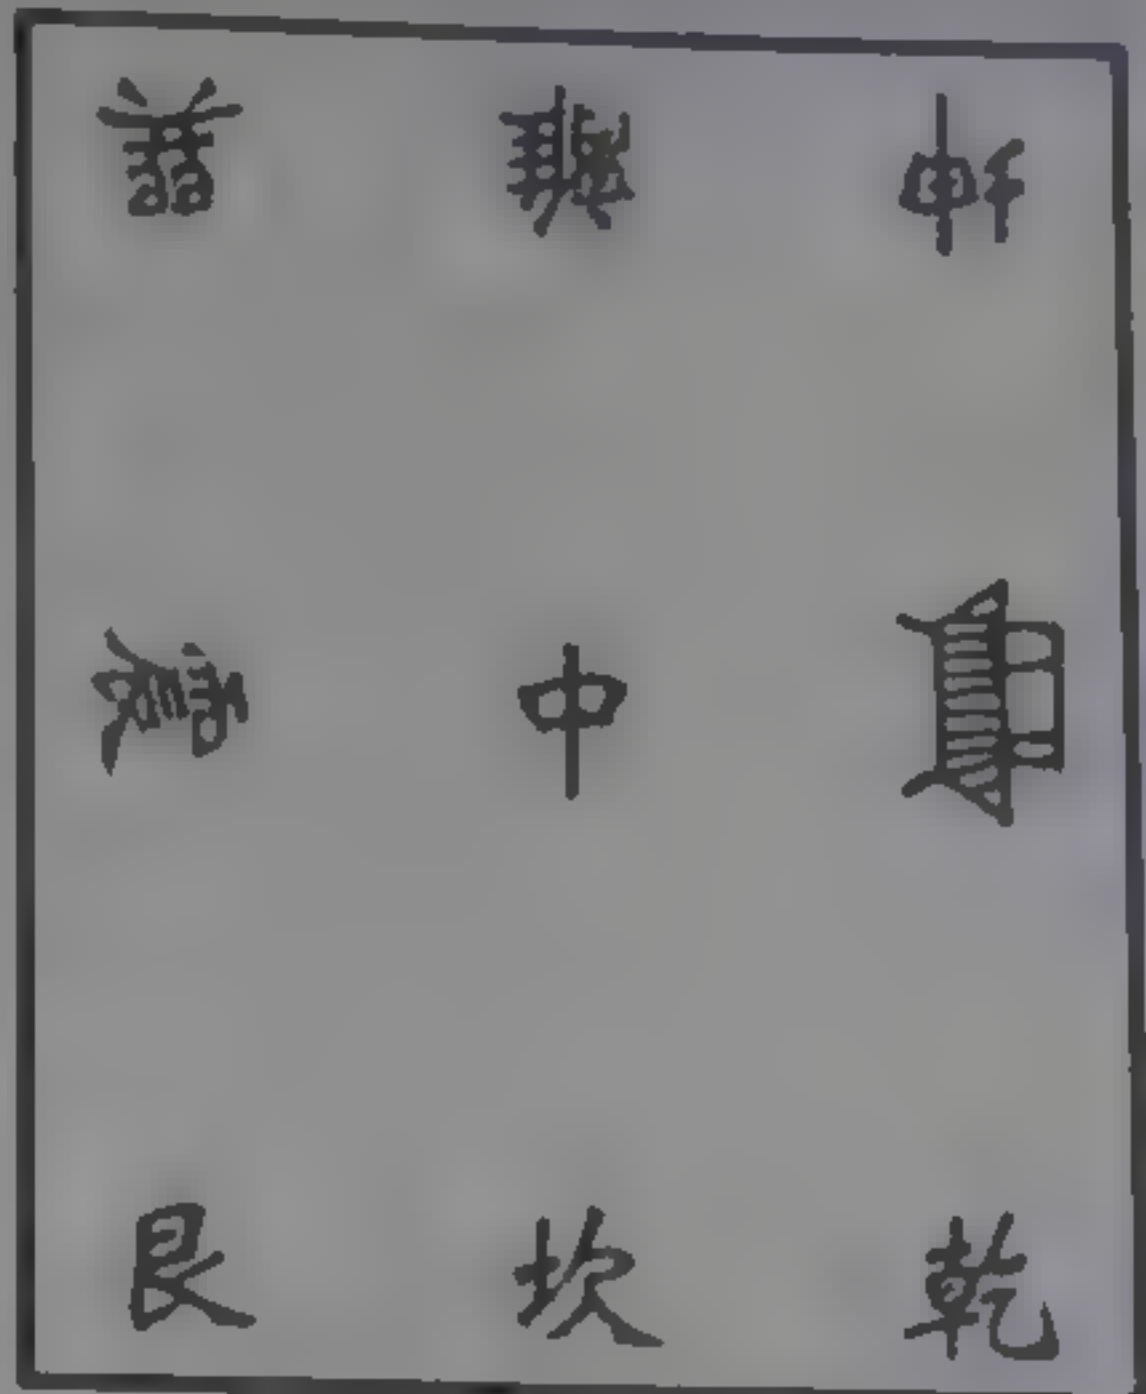 巽 離 坤
震 中
艮 坎 乾